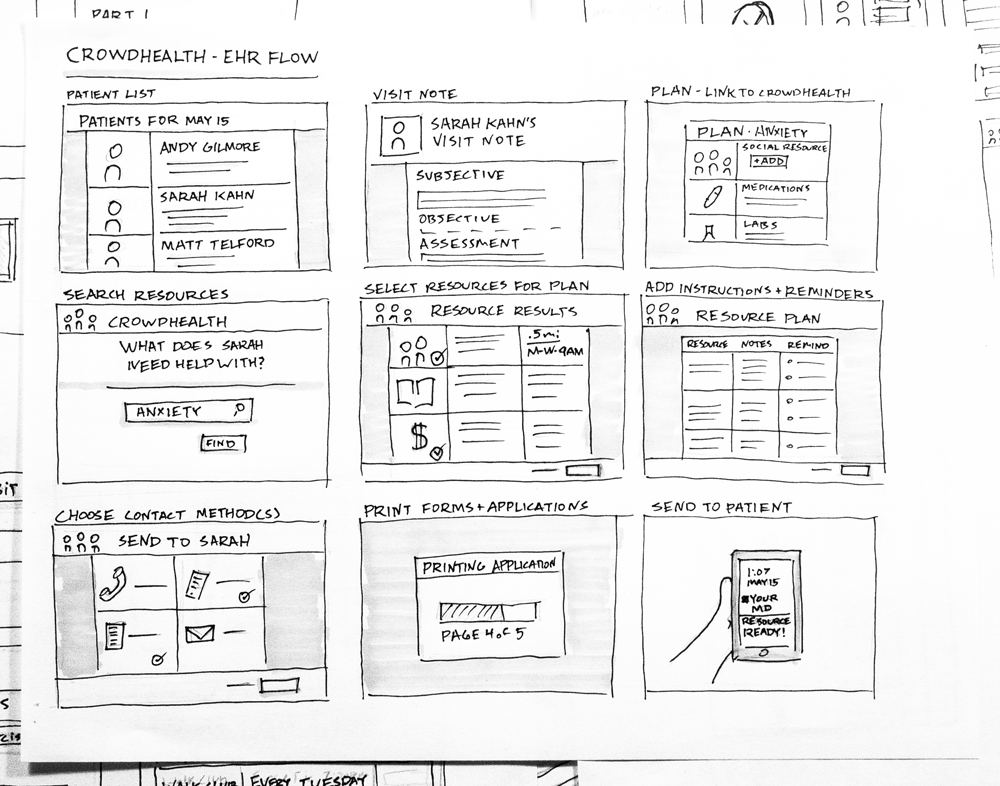 PART 1
CROWDHEALTH - EHR FLOW
PATIENT LIST
PATIENTS FOR MAY 15
ANDY GILMORE
SARAH KAHN
MATT TELFORD
VISIT NOTE
SARAH KAHN'S
VISIT NOTE
SUBJECTIVE
OBJECTIVE
ASSESSMENT
PLAN - LINK TO CROWDHEALTH
PLAN - ANXIETY
SOCIAL RESOURCE
+ADD
MEDICATIONS
LABS
SEARCH RESOURCES
CROWDHEALTH
WHAT DOES SARAH
NEED HELP WITH?
ANXIETY
FIND
SELECT RESOURCES FOR PLAN
RESOURCE RESULTS
.5mi
M-W-9AM
$
ADD INSTRUCTIONS + REMINDERS
RESOURCE PLAN
RESOURCE NOTES REMIND
CHOOSE CONTACT METHOD(S)
SEND TO SARAH
PRINT FORMS + APPLICATIONS
PRINTING APPLICATION
PAGE 4 OF 5
SEND TO PATIENT
1:07
MAY 15
YOUR
MD
RESOURCE
READY!
EVERY TUESDAY